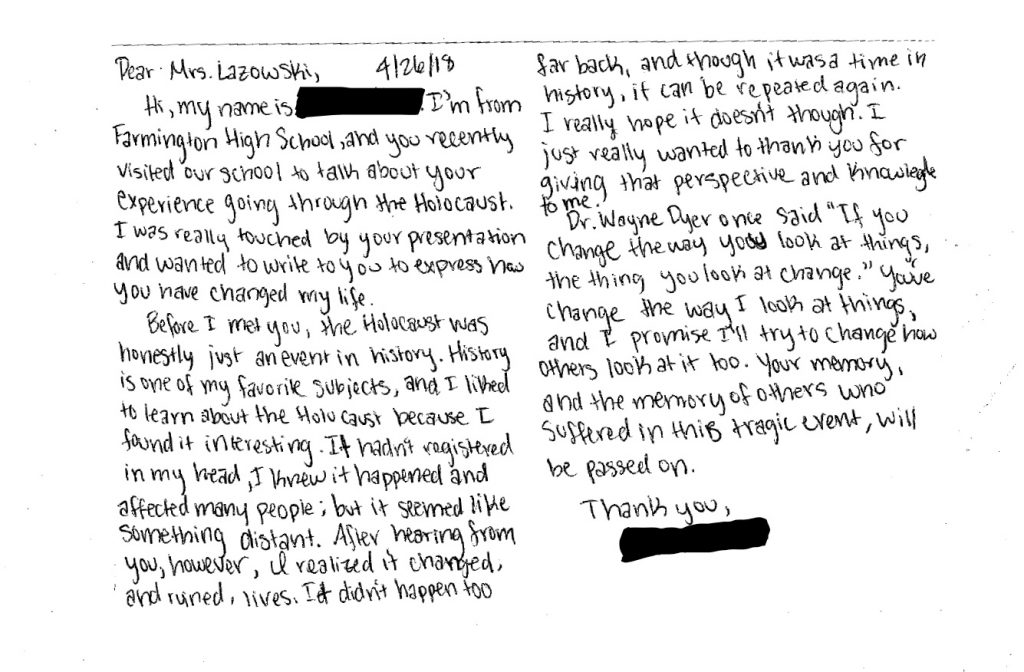 Dear Mrs. Lazowski, 4/26/18
Hi, my name is I'm from
Farmington High School, and you recently
visited our school to talk about your
experience going through the Holocaust.
I was really touched by your presentation
and wanted to write to you to express how
you have changed my life.
Before I met you, the Holocaust was
honestly just an event in history. History
is one of my favorite subjects, and I liked
to learn about the Holocaust because I
found it interesting. It hadn't registered
in my head, I knew it happened and
affected many people; but it seemed like
something distant. After hearing from
you, however, I realized it changed,
and ruined, lives. It didn't happen too
far back, and though it was a time in
history, it can be repeated again.
I really hope it doesn't though. I
just really wanted to thank you for
giving that perspective and knowlegde
to me.
Dr. Wayne Dyer once said "If you
change the way you look at things,
the thing you look at change." You've
change the way I look at things,
and I promise I'll try to change how
others look at it too. Your memory,
and the memory of others who
suffered in this tragic event, will
be passed on.
Thank you,